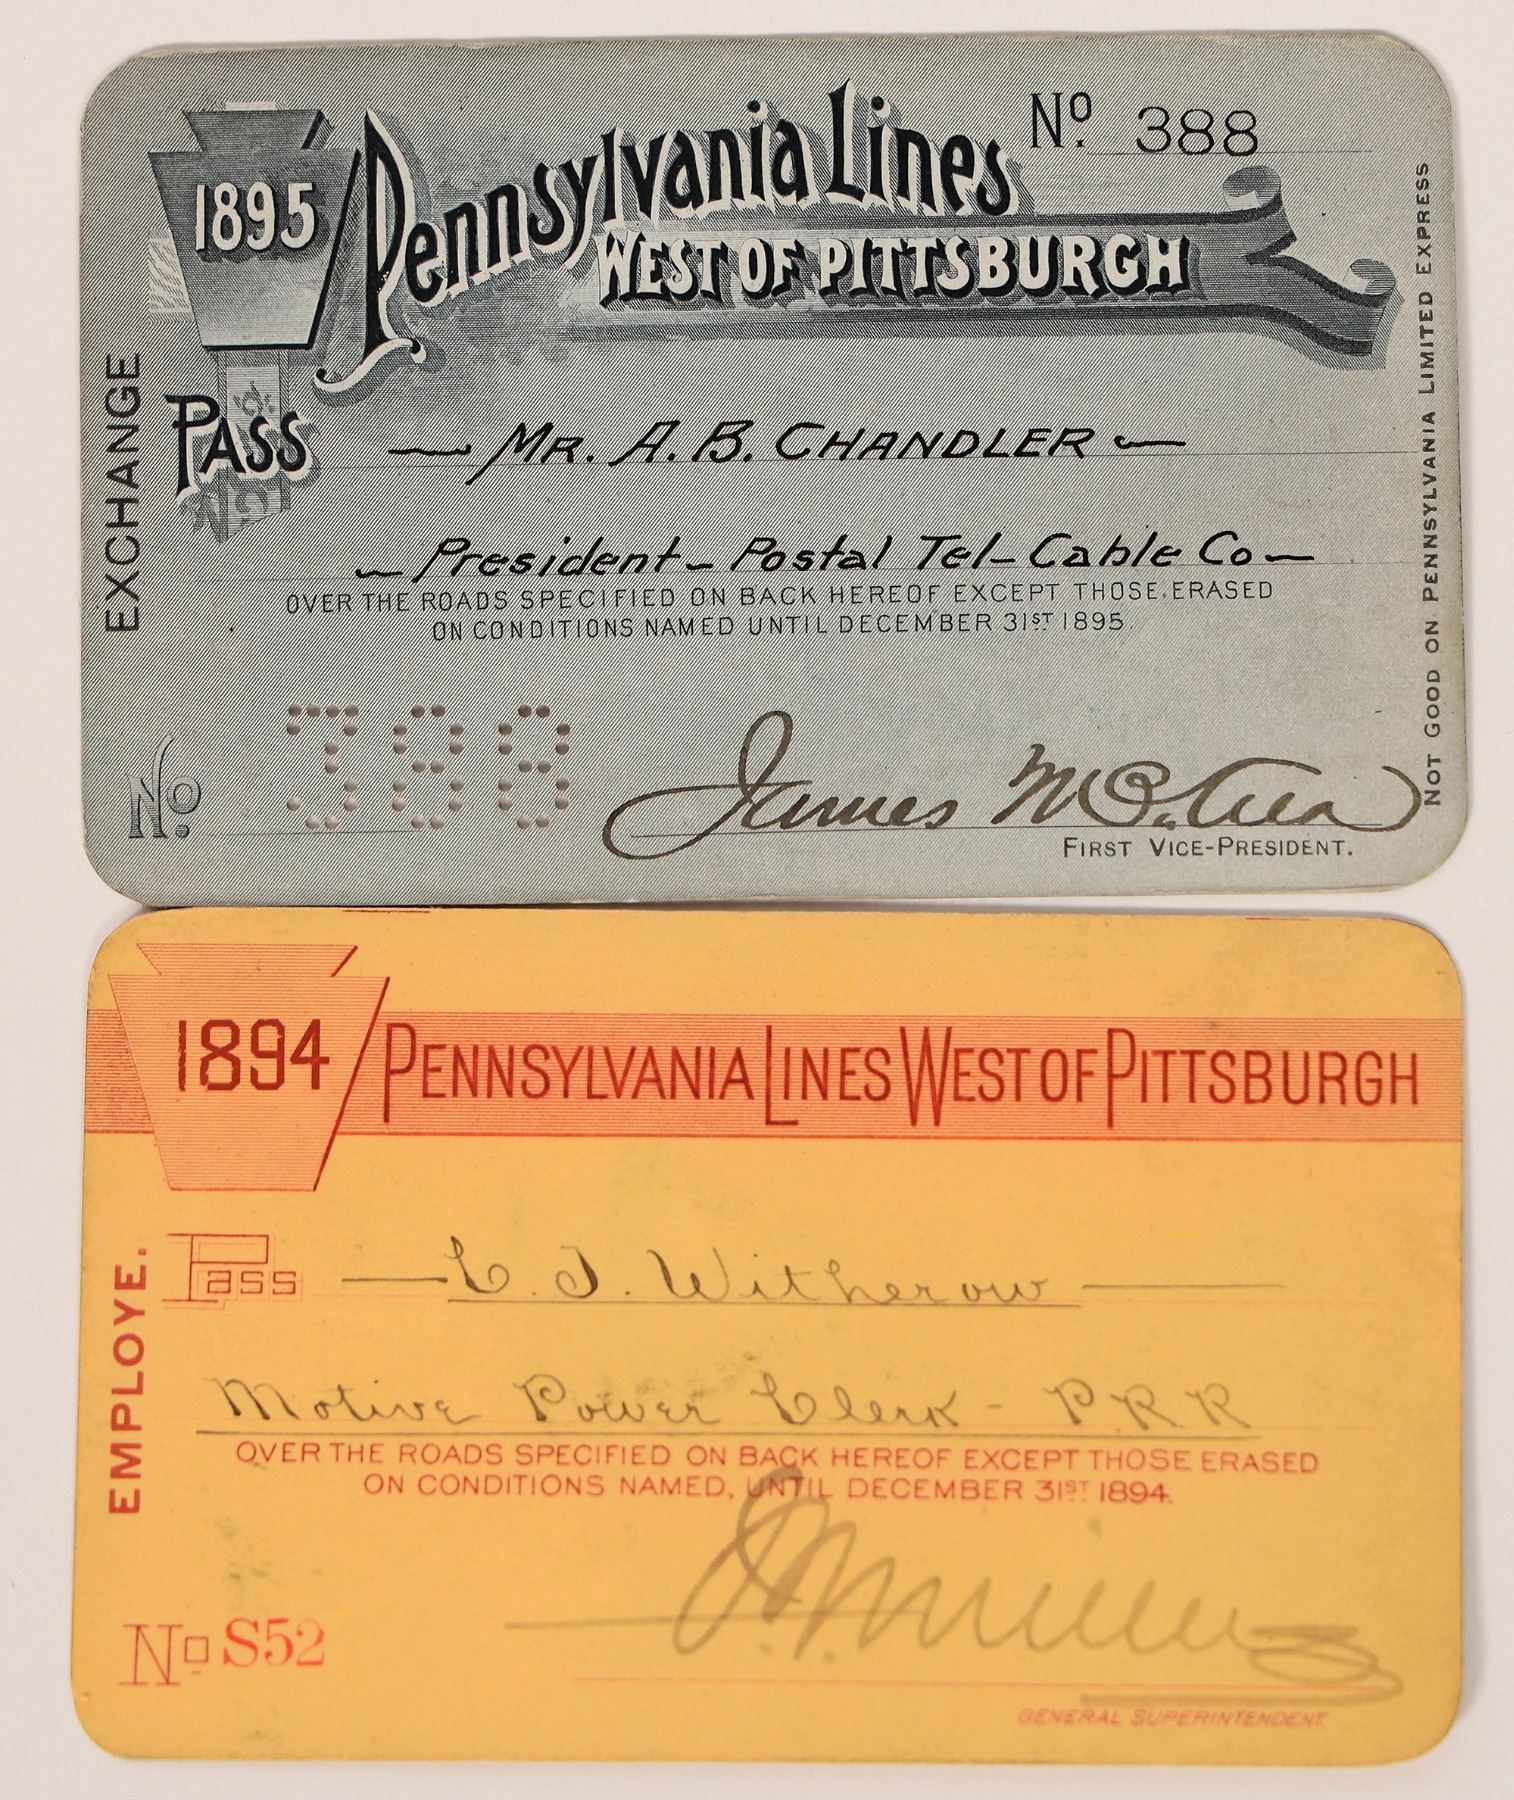 1895 Pennsylvania Lines No. 388
WEST OF PITTSBURGH
EXCHANGE
PASS MR. A. B. CHANDLER
President - Postal Tel - Cable Co
OVER THE ROADS SPECIFIED ON BACK HEREOF EXCEPT THOSE ERASED
ON CONDITIONS NAMED UNTIL DECEMBER 31ST 1895.
No. 388
James McCrea
FIRST VICE-PRESIDENT.
NOT GOOD ON PENNSYLVANIA LIMITED EXPRESS
1894 PENNSYLVANIA LINES WEST OF PITTSBURGH
EMPLOYE.
Pass C. J. Witherow
Motive Power Clerk - P R R
OVER THE ROADS SPECIFIED ON BACK HEREOF EXCEPT THOSE ERASED
ON CONDITIONS NAMED, UNTIL DECEMBER 31ST 1894.
No S52
GENERAL SUPERINTENDENT